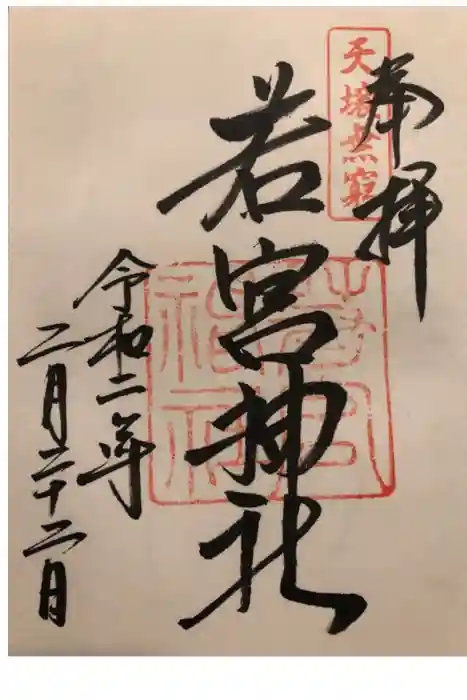 奉拝
天壌無窮
若宮神社
若宮
神社
令和二年
二月二十二日